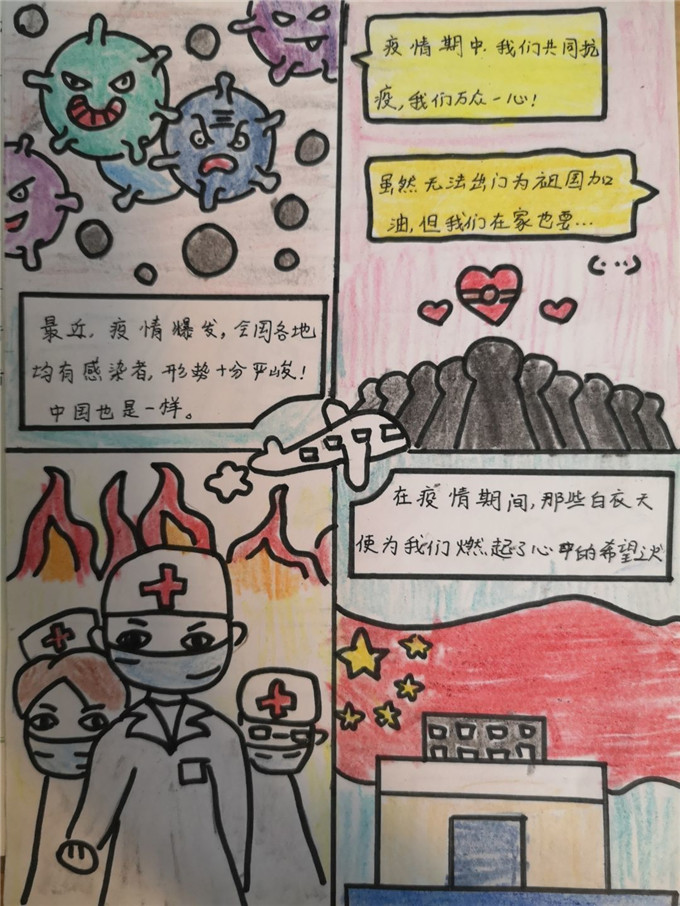 最近，疫情爆发，全国各地
均有感染者，形势十分严峻！
中国也是一样。
疫情期中，我们共同抗
疫，我们万众一心！
虽然无法出门为祖国加
油，但我们在家也要...
(...)
在疫情期间，那些白衣天
使为我们燃起了心中的希望之火